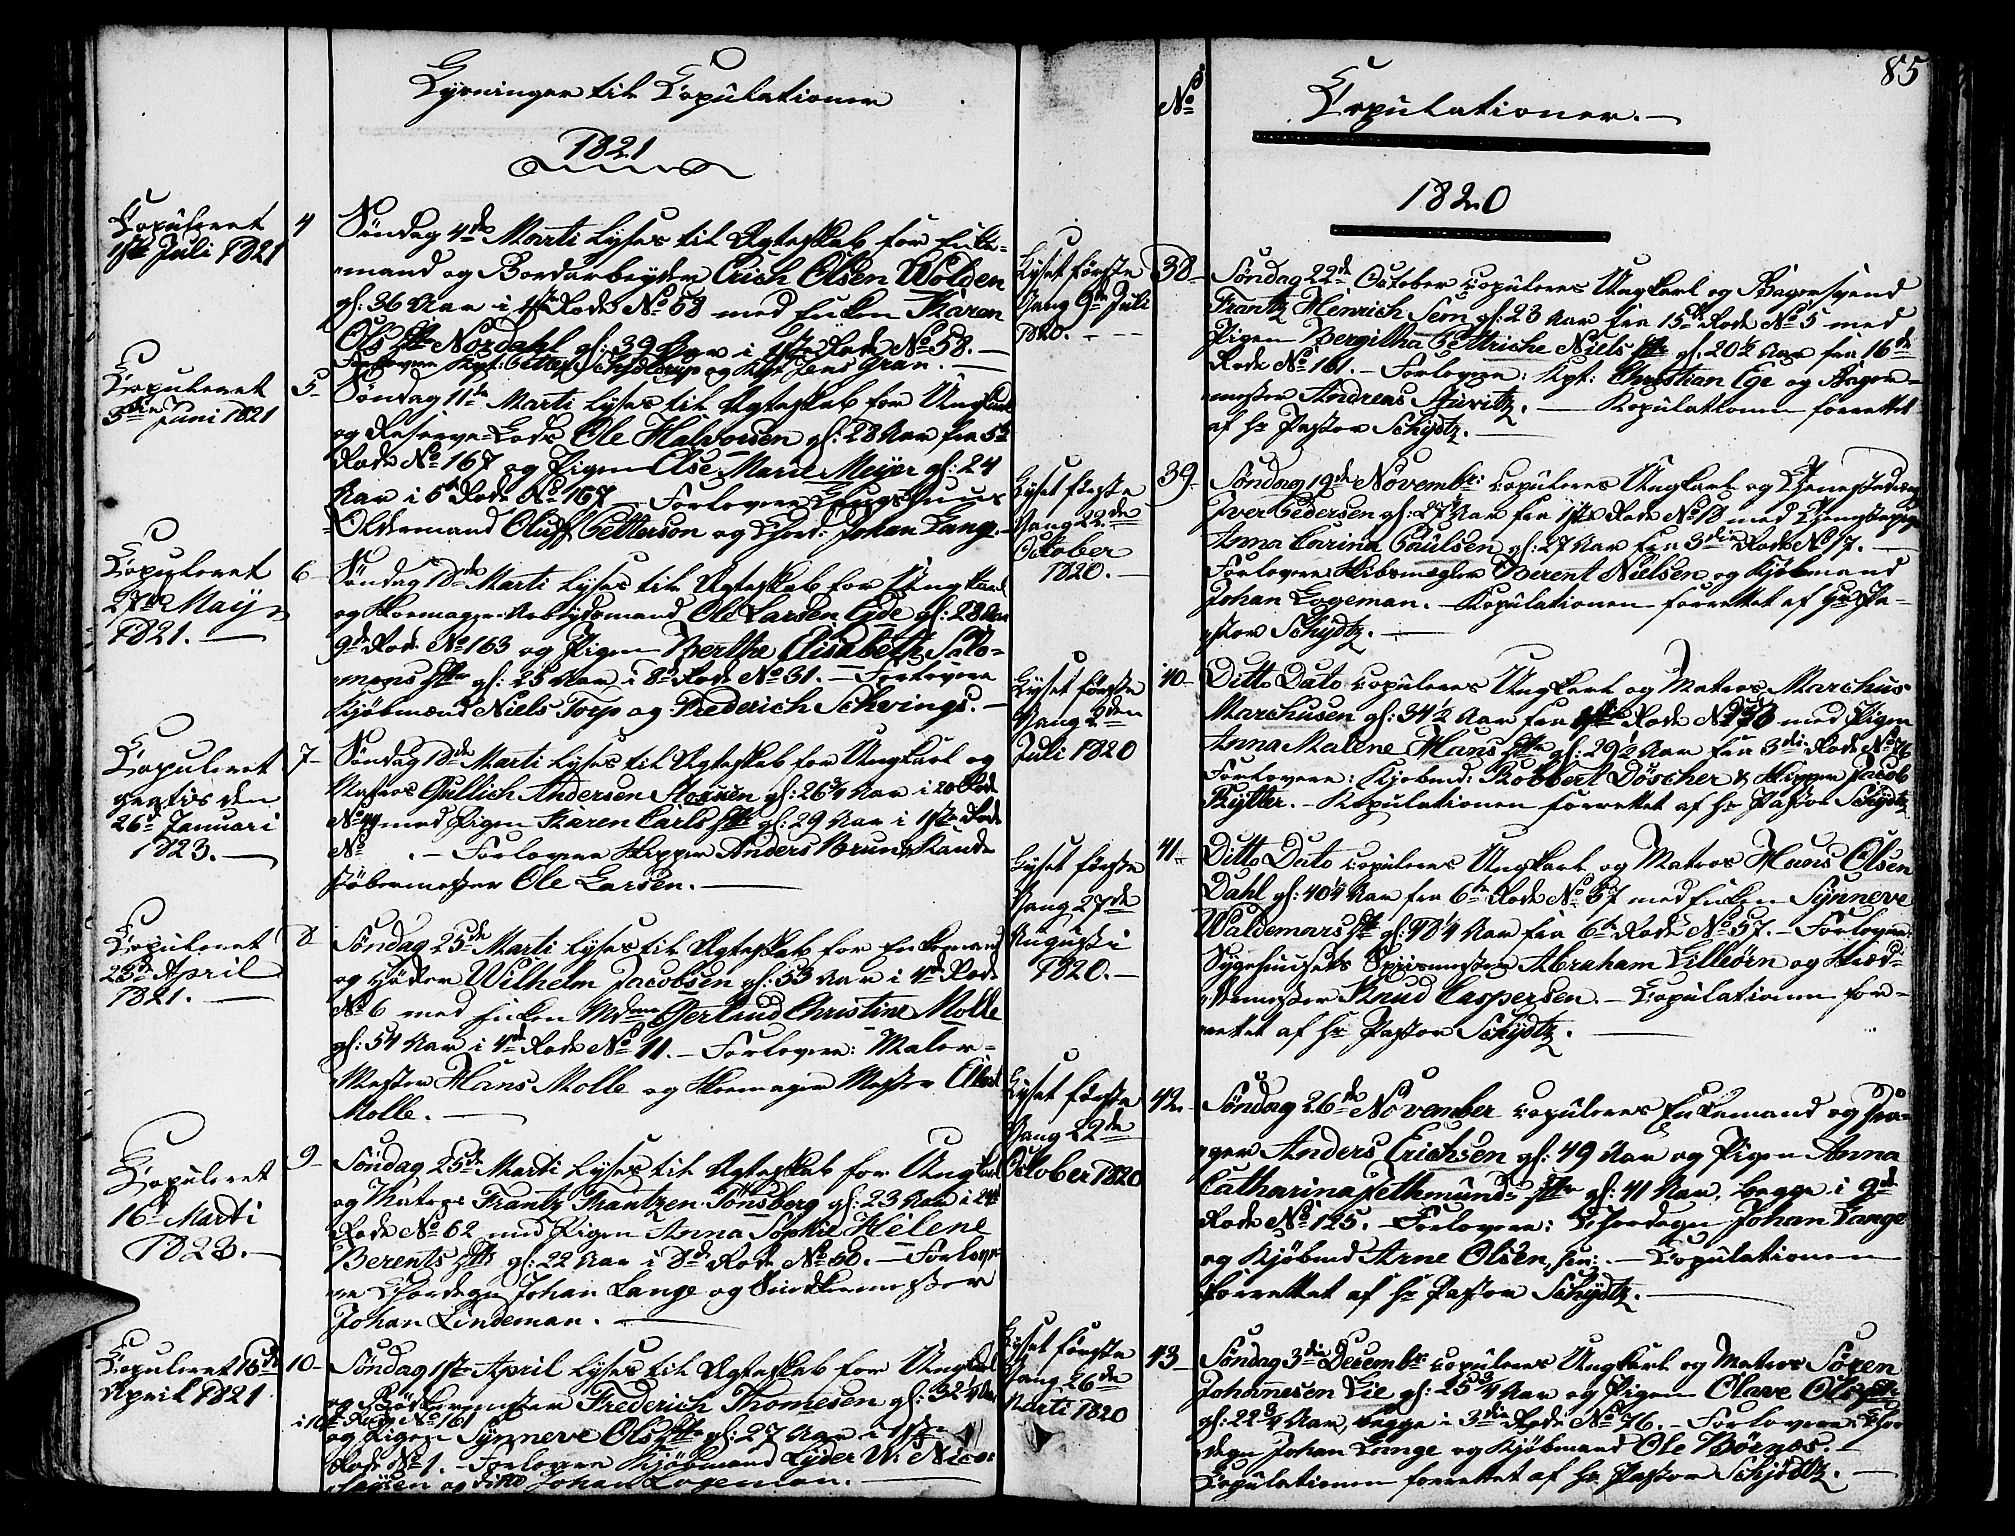 Lysninger til Copulationer
1821
Copuleret
1ste Juli 1821
4
Søndag 4de Marti lyses til Ægteskab for Enke-
mand og Bordarbeyder Erich Olsen Wolden
gl: 36 Aar i 1ste Rode No 58 med Enken Karen
Ols Dtr Nordahl gl: 39 Aar i 1ste Rode No 58. —
Forlovere Kpt: Petter Schjoldrup og Kpt Jens Gran. —
Copuleret
3die Juni 1821
5
Søndag 11te Marti lyses til Ægteskab for Ungkarl
og Reserve-Lods Ole Halvorsen gl: 28 Aar fra 5te
Rode No 167 og Pigen Else Marie Meyer gl: 24
Aar i 5te Rode No 167 — Forlovere Laugshuus
Oldermand Oluff Petterson og Chord: Johan Lange.
Copuleret
27de Maij
1821. —
6
Søndag 18de Marti lyses til Ægteskab for Ungkarl
og Skomager-Arbeydsmand Ole Larsen Eide gl: 28 Aar
9de Rode No 163 og Pigen Berthe Elisabeth Salo-
mons Dtr gl: 25 Aar i 8de Rode No 31. — Forlovere
Kjøbmænd Niels Torp og Frederich Schwings. —
Copuleret
gratis den
26de Januari
1823. —
7
Søndag 18de Marti lyses til Ægteskab for Ungkarl og
Matros Gullich Andersen gl: 26 3/4 Aar i 20 Rode
No 44 med Pigen Karen Carls Dtr gl: 29 Aar i 1ste Rode
No . — Forlovere Skipper Anders Brun & Kande-
støbermester Ole Larsen. —
Copuleret
23de April
1821. —
8
Søndag 25de Marti lyses til Ægteskab for Enkemand
og Wilhelm Jacobsen gl: 53 Aar i 4de Rode
No 6 med Enken Mdme Gjertrud Christine Molle
gl: 54 Aar i 4de Rode No 11. — Forlovere: Maler-
Mester Hans Molle og Skomager Mester Eilert
Molle. —
Copuleret
16de Marti
1823. —
9
Søndag 25de Marti lyses til Ægteskab for Ungkarl
og Matros Frantz Frantzen Tønsberg gl: 23 Aar i 24de
Rode No 62 med Pigen Anna Sophie Helene
Berents Dtr gl: 22 Aar i 8de Rode No 50. — Forlove-
re Chordegn Johan Lange og Snedkermester
Johan Lindeman. —
Copuleret 16de
April 1821
10
Søndag 1ste April lyses til Ægteskab for Ungkarl
og Bødkermester Frederich Thomesen gl: 32 1/4 Aar
i 16de Rode No 161
og Pigen Synneve Ols Dtr gl: 27 Aar i 1ste
Rode No 1. — Forlovere Kjøbmænd Lyder W. Nico-
laysen og ditto Johan Logeman. —
85
No
Copulationer. —
1820
Lyset første
Gang 9de Juli
1820. —
38
Søndag 22de October copuleres Ungkarl og Bagersvend
Frantz Henrich Sem gl: 23 Aar fra 15de Rode No 5 med
Pigen Bergitha Petriche Niels Dtr gl. 20 1/2 Aar fra 16de
Rode No 161. — Forlovere: Kpt: Christian Ege og Bager-
mester Andreas Sturitz. — Kopulationen forrettet
af Hr Pastor Schydtz. —
Lyset første
Gang 22de
October
1820. —
39
Søndag 19de Novembr: copuleres Ungkarl og Tjenestedreng
Iver Pedersen gl: 27 1/2 Aar fra 1ste Rode No 18 med Tjenestepige
Anna Carina Paulsen gl: 27 Aar fra 3die Rode No 17. —
Forlovere Skibsmægler Berent Nielsen og Kjøbmand
Johan Logeman. — Kopulationen forrettet af Hr Pa-
stor Schydtz. —
Lyset første
Gang 2den
Juli 1820
40
Ditto Dato copuleres Ungkarl og Matros Marchus
Marchusen gl: 34 1/2 Aar fra Rode No med Pigen
Anna Malene Hans Dtr gl: 29 1/2 Aar fra 3die Rode No 76
Forlovere: Kjøbmd: Robbert Döscher & Skipper Jacob
Rytter. — Kopulationen forrettet af Hr Pastor Schydtz
Lyset første
Gang 27de
Augusti
1820. —
41
Ditto Dato copuleres Ungkarl og Matros Hans Olsen
Dahl gl: 40 1/4 Aar fra 6te Rode No 57 med Enken Synneve
Waldemars Dtr gl: 48 1/4 Aar fra 6te Rode No 57. — Forlovere
Sygehuusets Spiismester Abraham Lilliörn og Skræd-
dermester Knud Caspersen. — Copulationen for-
rettet af Hr Pastor Schydtz. —
Lyset første
Gang 22de
October 1820
42
Søndag 26de November copuleres Enkemand og Dra-
ger Anders Erichsen gl: 49 Aar og Pigen Anna
Catharina Dtr gl: 41 Aar, begge i 9de
Rode No 125. — Forlovere: Chordegn Johan Lange
og Kjøbmd Arne Olsen, sen:. — Copulationen
forrettet af Hr Pastor Schydtz. —
Lyset første
Gang 26de
Marti 1820
43
Søndag 3die Decembr copuleres Ungkarl og Matros Soren
Johannesen Lie gl: 25 3/4 Aar og Pigen Olave Ols Dtr
gl: 22 3/4 Aar, begge i 3die Rode No 76. — Forlovere: Chor-
degn Johan Lange og Kjøbmand Ole Börnæs. —
Copulationen forrettet af Hr Pastor Schjødtz. —